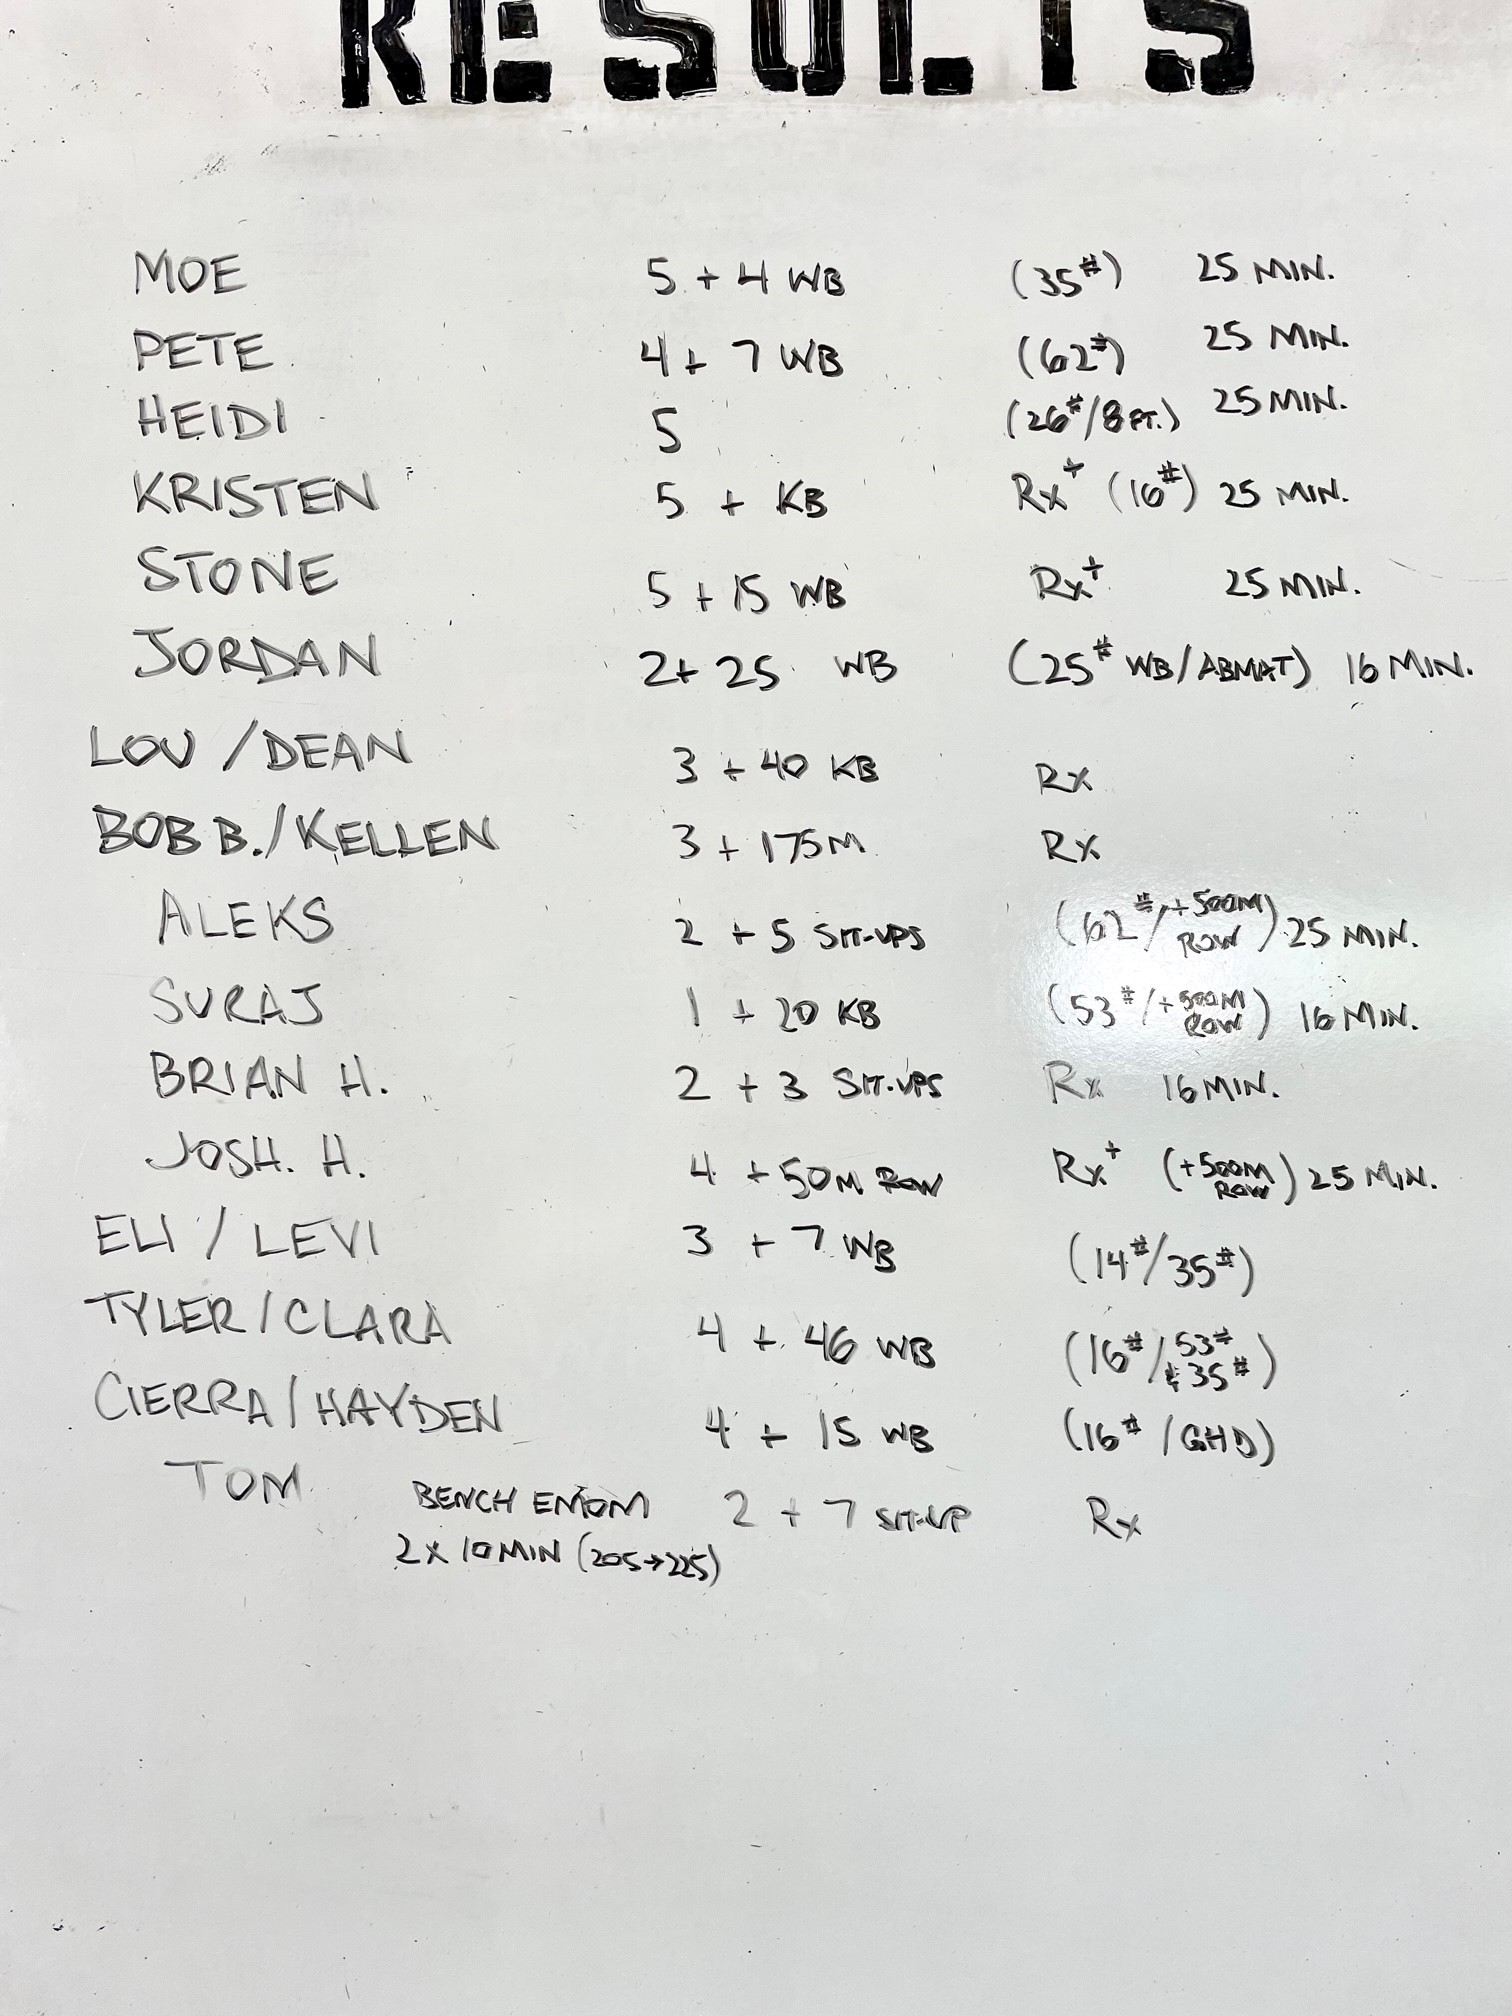 RESULTS
MOE 5 + 4 WB (35#) 25 MIN.
PETE 4 + 7 WB (62#) 25 MIN.
HEIDI 5 (26#/8 FT.) 25 MIN.
KRISTEN 5 + KB Rx+ (16#) 25 MIN.
STONE 5 + 15 WB Rx+ 25 MIN.
JORDAN 2+ 25 WB (25# WB/ABMAT) 16 MIN.
LOU /DEAN 3 + 40 KB Rx
BOB B./KELLEN 3 + 175M Rx
ALEKS 2 + 5 SIT-UPS (62#/+500M ROW) 25 MIN.
SURAJ 1 + 20 KB (53#/+500M ROW) 16 MIN.
BRIAN H. 2 + 3 SIT-UPS Rx 16 MIN.
JOSH. H. 4 + 50M ROW Rx+ (+500M ROW) 25 MIN.
ELI / LEVI 3 + 7 WB (14#/35#)
TYLER/CLARA 4 + 46 WB (16#/53# & 35#)
CIERRA/HAYDEN 4 + 15 WB (16# /GHD)
TOM BENCH EMOM 2 + 7 SIT-UP Rx
2 x 10 MIN (205→225)